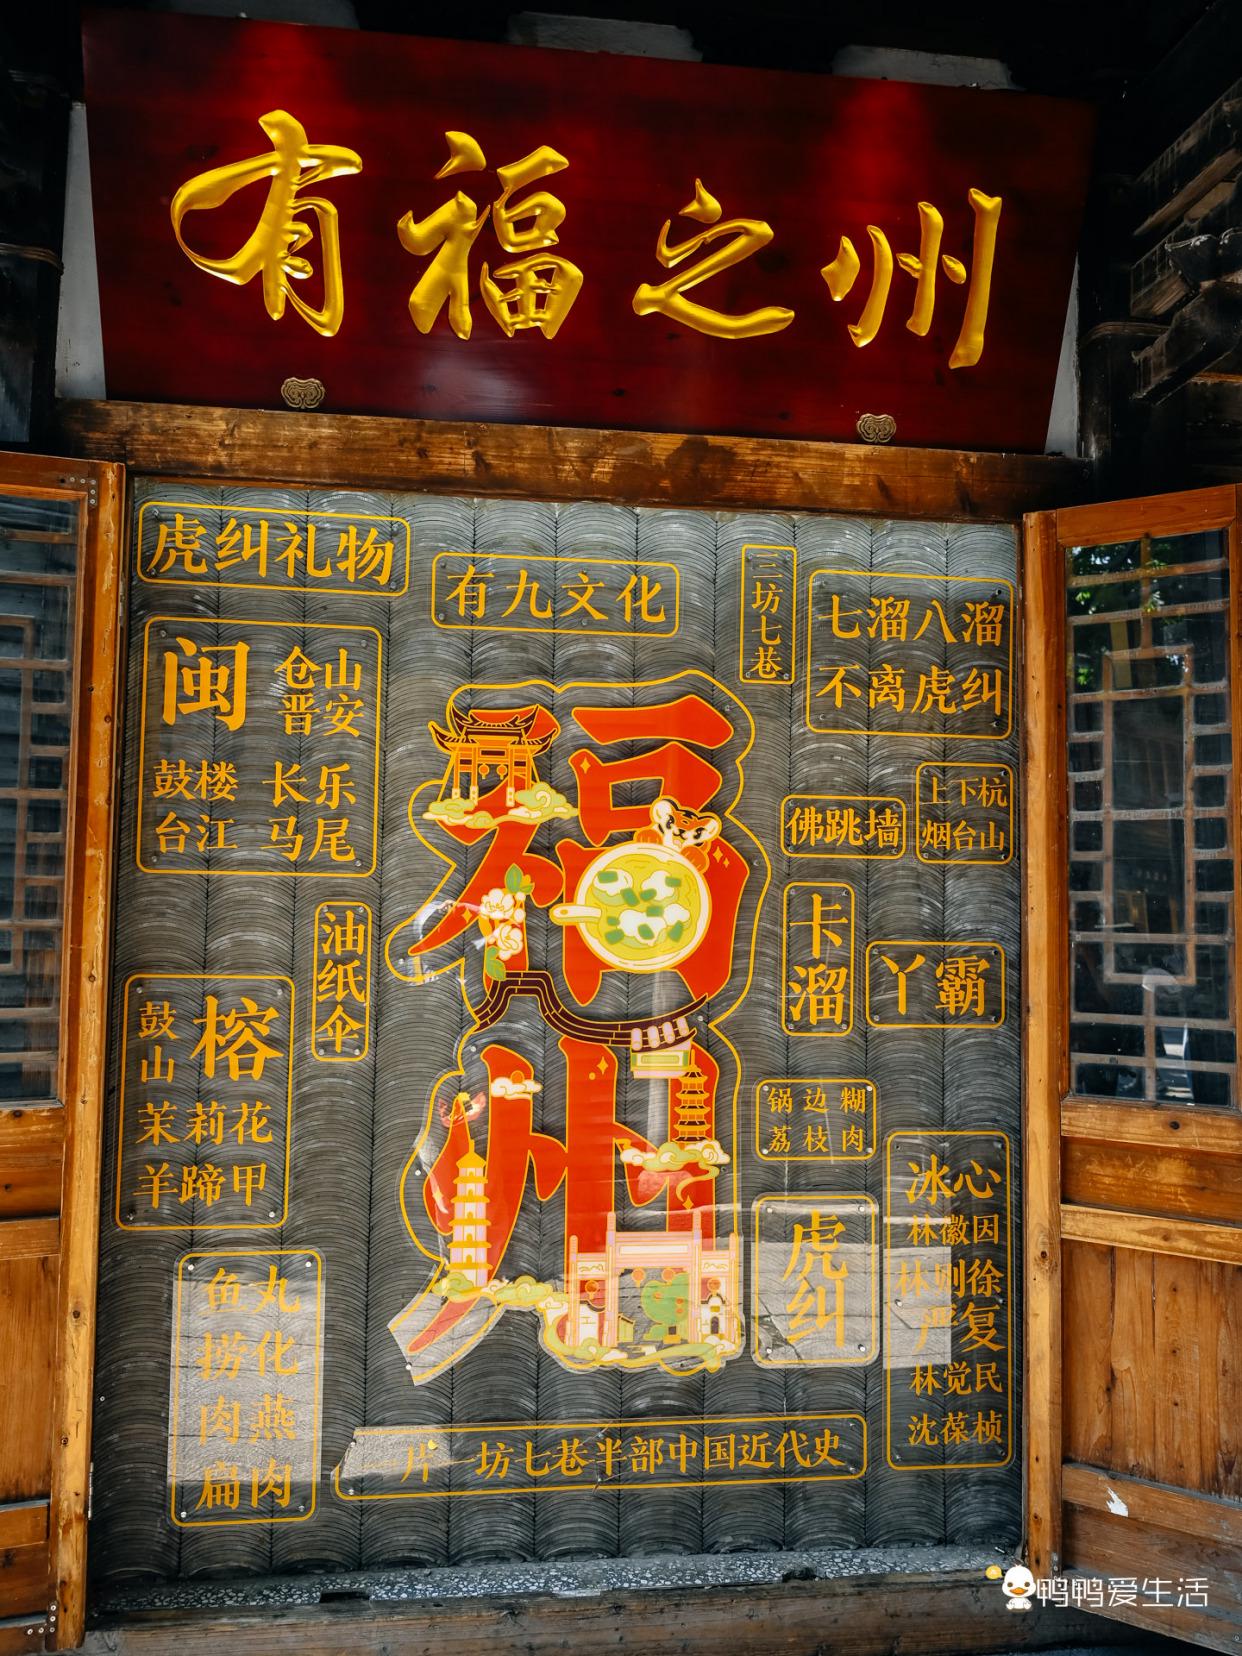 有福之州
虎纠礼物
有九文化
三坊七巷
七溜八溜
不离虎纠
闽
仓山
晋安
鼓楼
长乐
台江
马尾
福州
佛跳墙
上下杭
烟台山
油纸伞
卡溜
丫霸
鼓山
榕
茉莉花
羊蹄甲
锅边糊
荔枝肉
虎纠
冰心
林徽因
林则徐
严复
林觉民
沈葆桢
鱼丸
捞化
肉燕
扁肉
一片一坊七巷半部中国近代史
鸭鸭爱生活